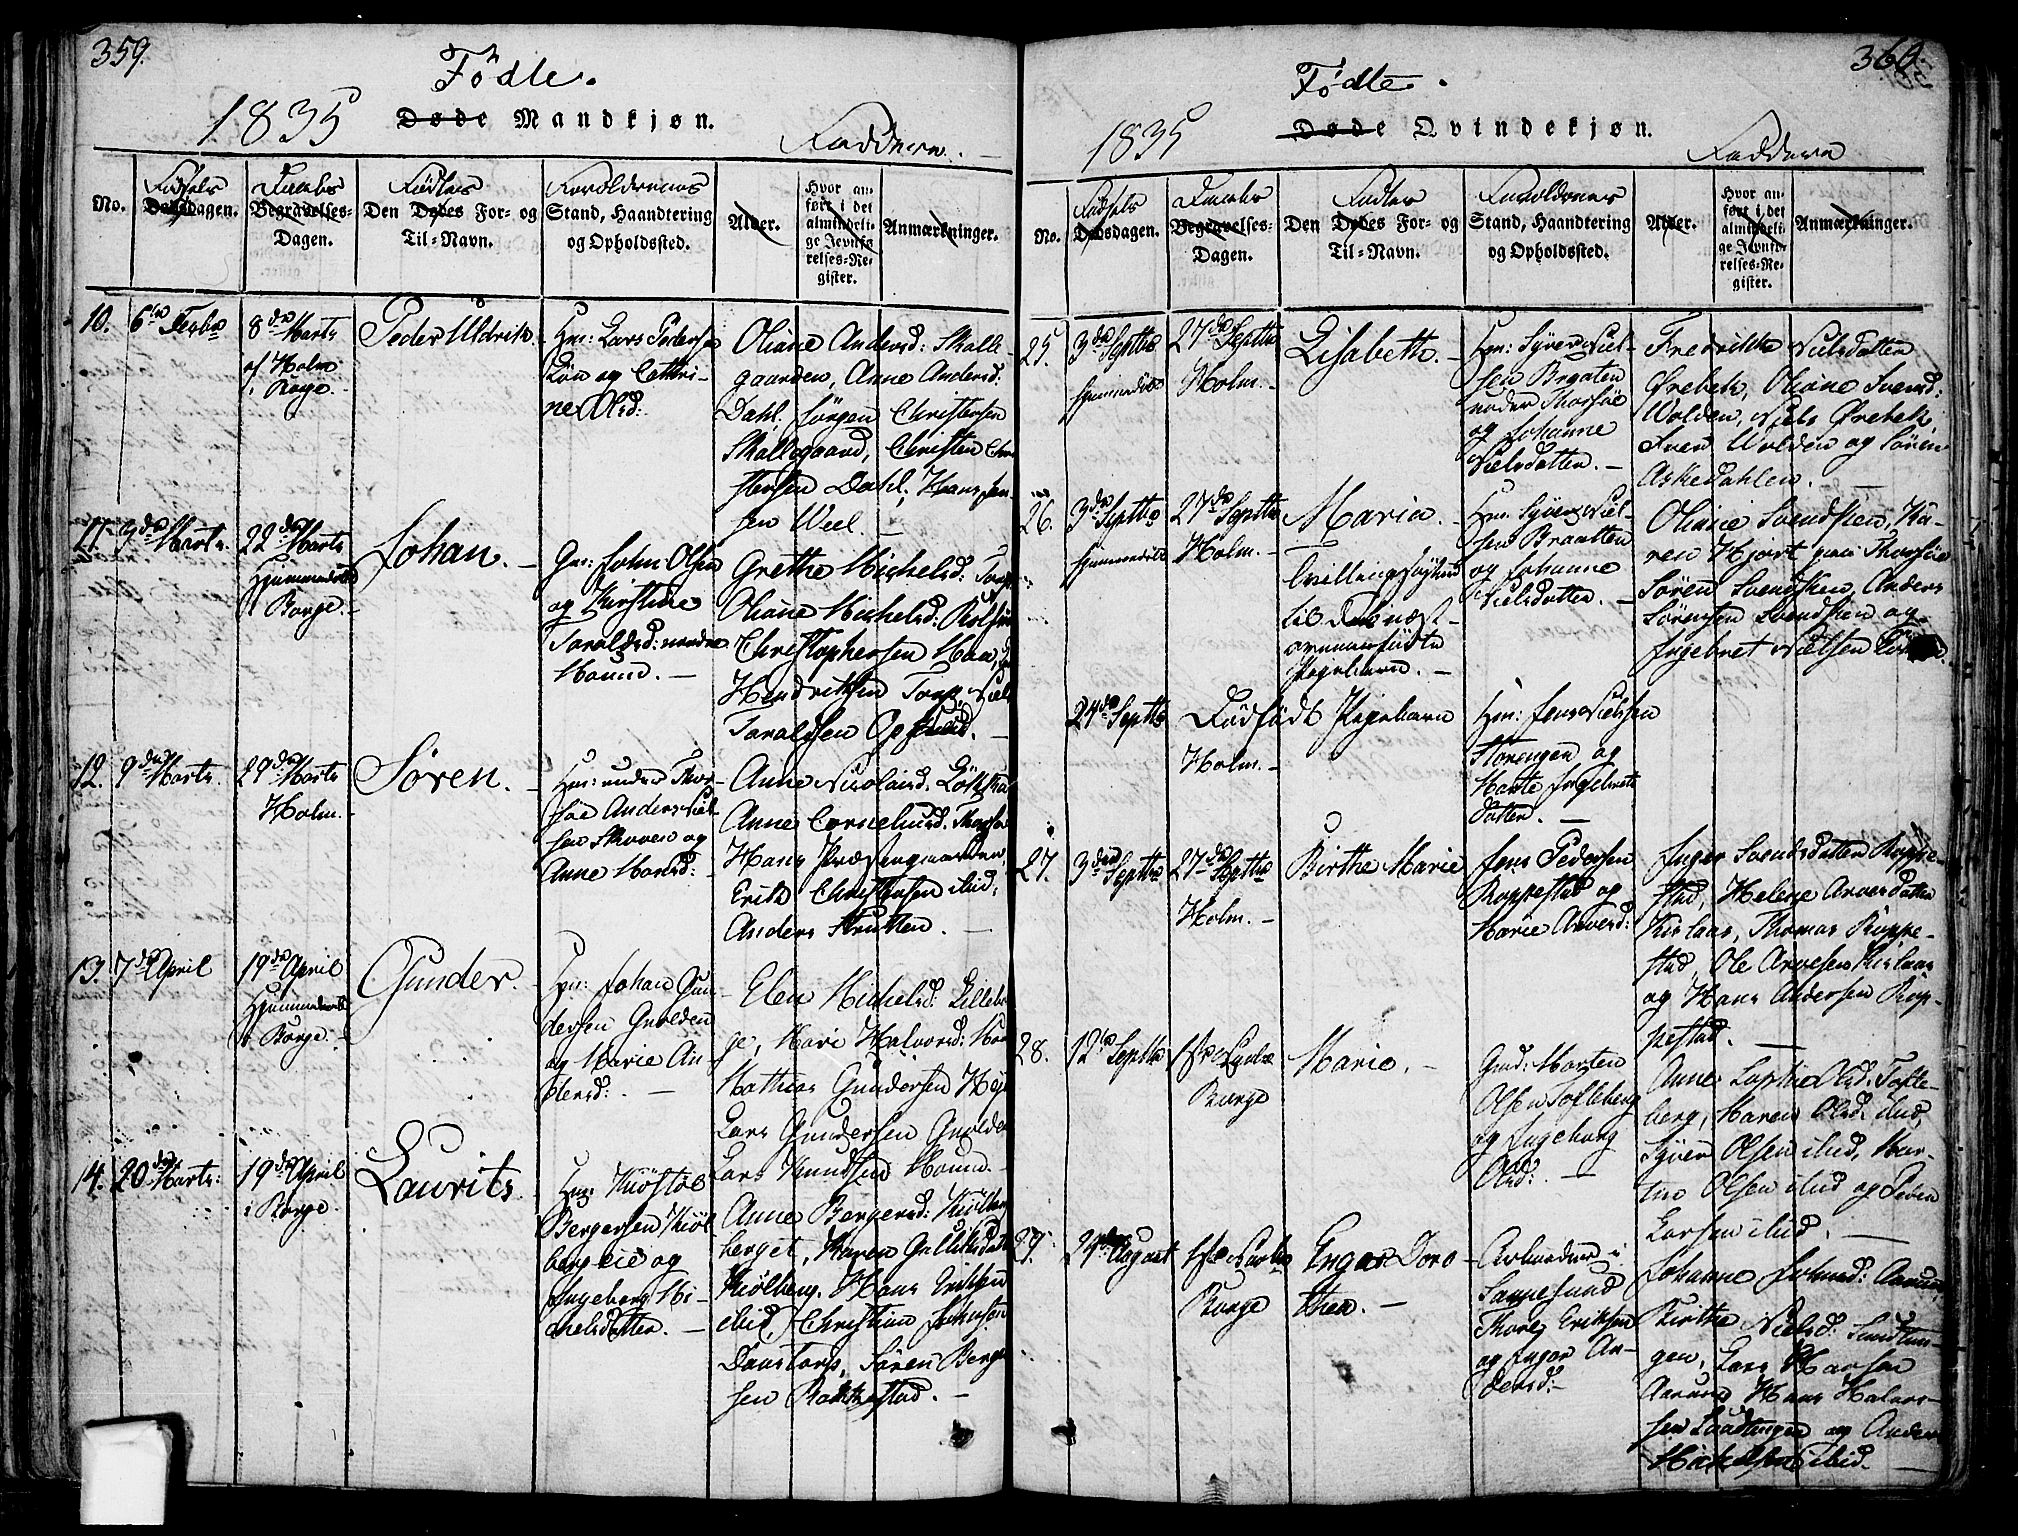 359.
Fødte.
1835 Døde Mandkjøn.
Faddere.
No.
Fødsels
Dødsdagen.
Daabs
Begravelses-
Dagen.
Fødtes
Den Dødes For- og
Til-Navn.
Forældrenes
Stand, Haandtering
og Opholdssted.
Alder.
Hvor an-
ført i det
almindeli-
ge Jevnfø-
relses-Re-
gister.
Anmærkninger.
10.
6te Febr
8de Marts
af Holm
i Borge.
Peder Uldrik.
Hm: Lars Peders
og Cathri-
ne Olsd:
Oliane Andersd: Skalle-
gaarden, Anne Andersd:
Dahl. Jørgen Christensen
Skallegaard, Christen Chri
stensen Dahl, Hans Jen-
sen Weel.
11.
3de Marts.
22de Marts
Hjemmedøbt
i Borge.
Johan.
Gm: John Olsen
og Kirstine
Taraldsd: nordre
Houm.
Grethe Michelsd: Torp
Oliane Michelsd:
Christophersen
Hendriksen Torp, Niels
Taraldsen Opstad.
12.
9de Marts
29de Marts
Holm.
Søren.
Hm: under Thor-
søe Anders Niel-
sen Skoven og
Anne Hansd:
Anne Nicolaisd.
Anne Corneliusd. Thorsøe
Hans Præstegaarden,
Erik Christensen ibid:
Anders Strutten.
13.
7de April
19de April
Hjemmedøbt
i Borge.
Gunder.
Hm: Johan Gun-
dersen Gulden
og Marie An-
dersd:
Elen Michelsd: Lillebor-
ge, Mari Halvorsd:
Mathias Gundersen
Lars Gundersen
Lars Knudsen Houm.
14.
20de Marts:
19de April
i Borge.
Laurits
Hm: Kiøstol
Bergersen Kiøl-
berg eie og
Ingeborg Mi-
chelsdatter.
Anne Bergersd: Kiølber-
berget, Karen Gulliksdatt
Kiølberg. Hans Eriksen
ibid, Christian Johnsen
Daastorp, Søren Berge
sen Rokkestad.
360.
Fødte.
1835 Døde Qvindekjøn.
Faddere
No.
Fødsels
Dødsdagen.
Daabs
Begravelses-
Dagen.
Fødtes
Den Dødes For- og
Til-Navn.
Forældrenes
Stand, Haandtering
og Opholdssted.
Alder.
Hvor an-
ført i det
almindeli-
ge Jevnfø-
relses-Re-
gister.
Anmærkninger.
25.
3de Septbr
hjemmedøbt
27de Septbr
Holm.
Lisabeth.
Hm: Syver Niel-
sen Braaten
under Thorsøe
og Johanne
Nielsdatter.
Fredrikke Nielsdatter
Ørebek, Oliane Svensd:
Wolden, Niels Ørebek,
Sven Wolden og Søren
Askedahlen.
26.
3de Septbr
hjemmedøbt
27de Septbr
Holm.
Maria.
Tvillingsøskend
til det næst-
ovenanførte
Pigebarn.
Hm: Syver Niel-
sen Braatten
og Johanne
Nielsdatter.
Oliane Svendsken, Ka-
ren Hjort paa Thorsøe
Søren Svendsken, Anders
Sørensen Svendsken og
Ingebret Nielsen
24de Septbr
Dødfødt Pigebarn
Holm.
Hm: Jens Nielsen
Storengen og
Marte Ingebrets
datter.
27.
3die Septbr
27de Septbr
Holm.
Birthe Marie
Jens Pedersen
Roppestad og
Marie Arvesd:
Inger Svendsdatter Roppe-
stad, Helene Arvesdatter
Kislaar, Thomas Roppe-
stad, Ole Arvesen Kislaar
og Hans Andersen Rop-
pestad.
28.
12te Septbr
4de Octbr
Borge
Marie.
Gmd: Morten
Olsen Tofteberg
og Ingeborg
Olsd:
Anne Sophie Olsd: Tofte-
berg, Maren Olsd. ibid,
Syver Olsen ibid, Mar-
tin Olsen ibid og Peder
Larsen ibid.
29.
24de August
4de Octbr
Borge
Inger Doro-
thea.
Arbeider i
Sannesund
Thore Eriksen
og Inger An-
dersd:
Johanne Johnsd: Aarum,
Birthe Nielsd: Sandtan-
gen, Lars Hansen
Aarum, Hans Halvor-
sen Sandtangen og Anders
Michelsen ibid.